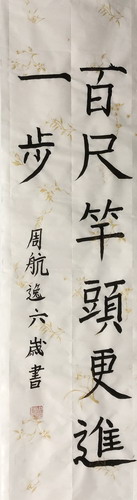 百尺竿頭更進
一步
周航逸六歲書